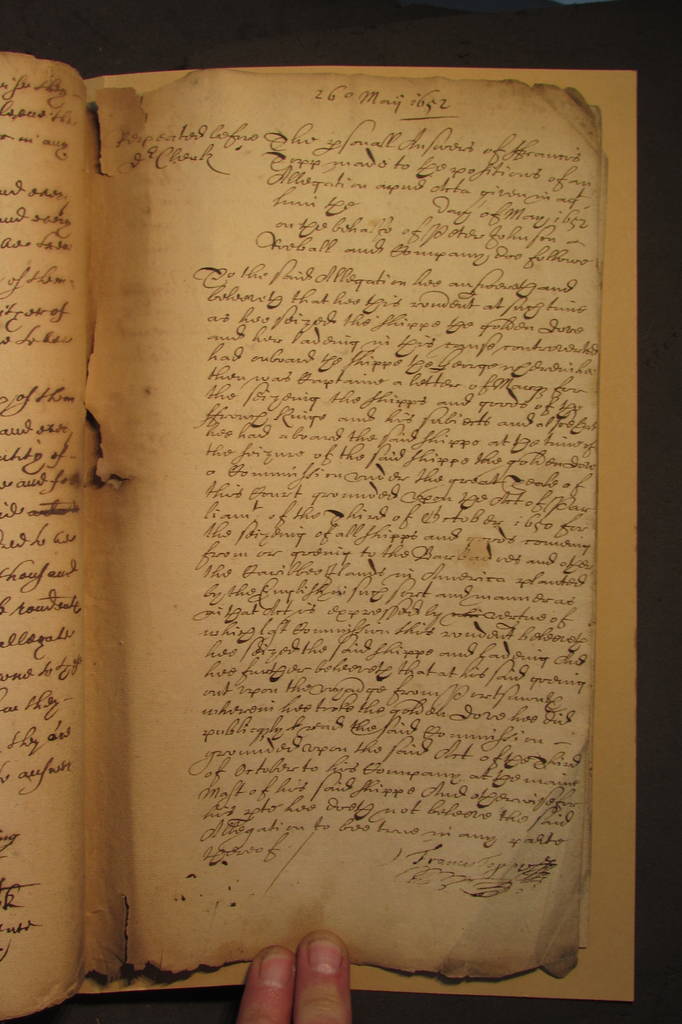 26o Maij 1652
Repeated before
dr. Clerk
The psonall Answers of ffrancis
Topp made to the positions of an
Allegation apud Acta given in agt
him the day of May 1652
on the behalfe of Peter Johnson
and Company, doe followe
To the said Allegation hee answereth and
beleeveth that hee this rendent at such time
as hee seized the shippe the golden Dove
and her ladeing in this cause controverted
had onboard the shippe the George whereof hee
then was Captaine a letter of Marq for
the seizeing the shipps and goods of the
ffrench Kinge and his subiects and
hee had aboard the said shippe at the time of
the seizure of the said shippe the golden dove
a Commission under the great Seale of
this Court grounded upon the Act of Par
liamt of the Third of October 1650 for
the seizeing of all shipps and goods comeing
from or goeing to the Barbadoes and other
the Caribbee Islands in America planted
by the English in such sort and manner as
in that Act is expressed by vertue of
which last Commission this rendent beleeveth
hee seized the said shippe and ladeing And
hee further beleeveth that at his said goeing
out upon the voyadge from Portsmouth
wherein hee tooke the golden Dove hee did
publiquely read the said Commission
grounded upon the said Act of the Third
of October to his Company at the maine
Mast of his said shippe And otherwise for
his pte hee doeth not beleeve the said
Allegation to bee true in any parte
thereof
Francis Topp
rise they
in any
and every
of them
of them
and every
thousand
rendent
allegate
they
they are
answer